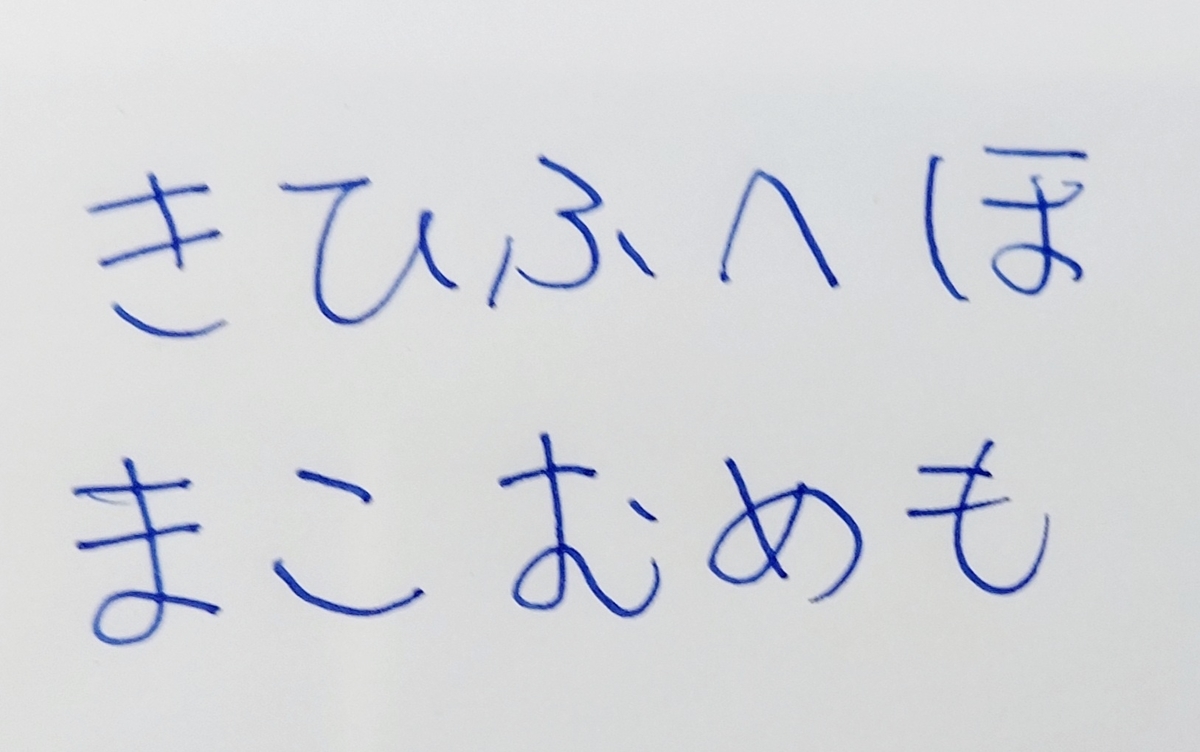 きひふへほ
まこむめも